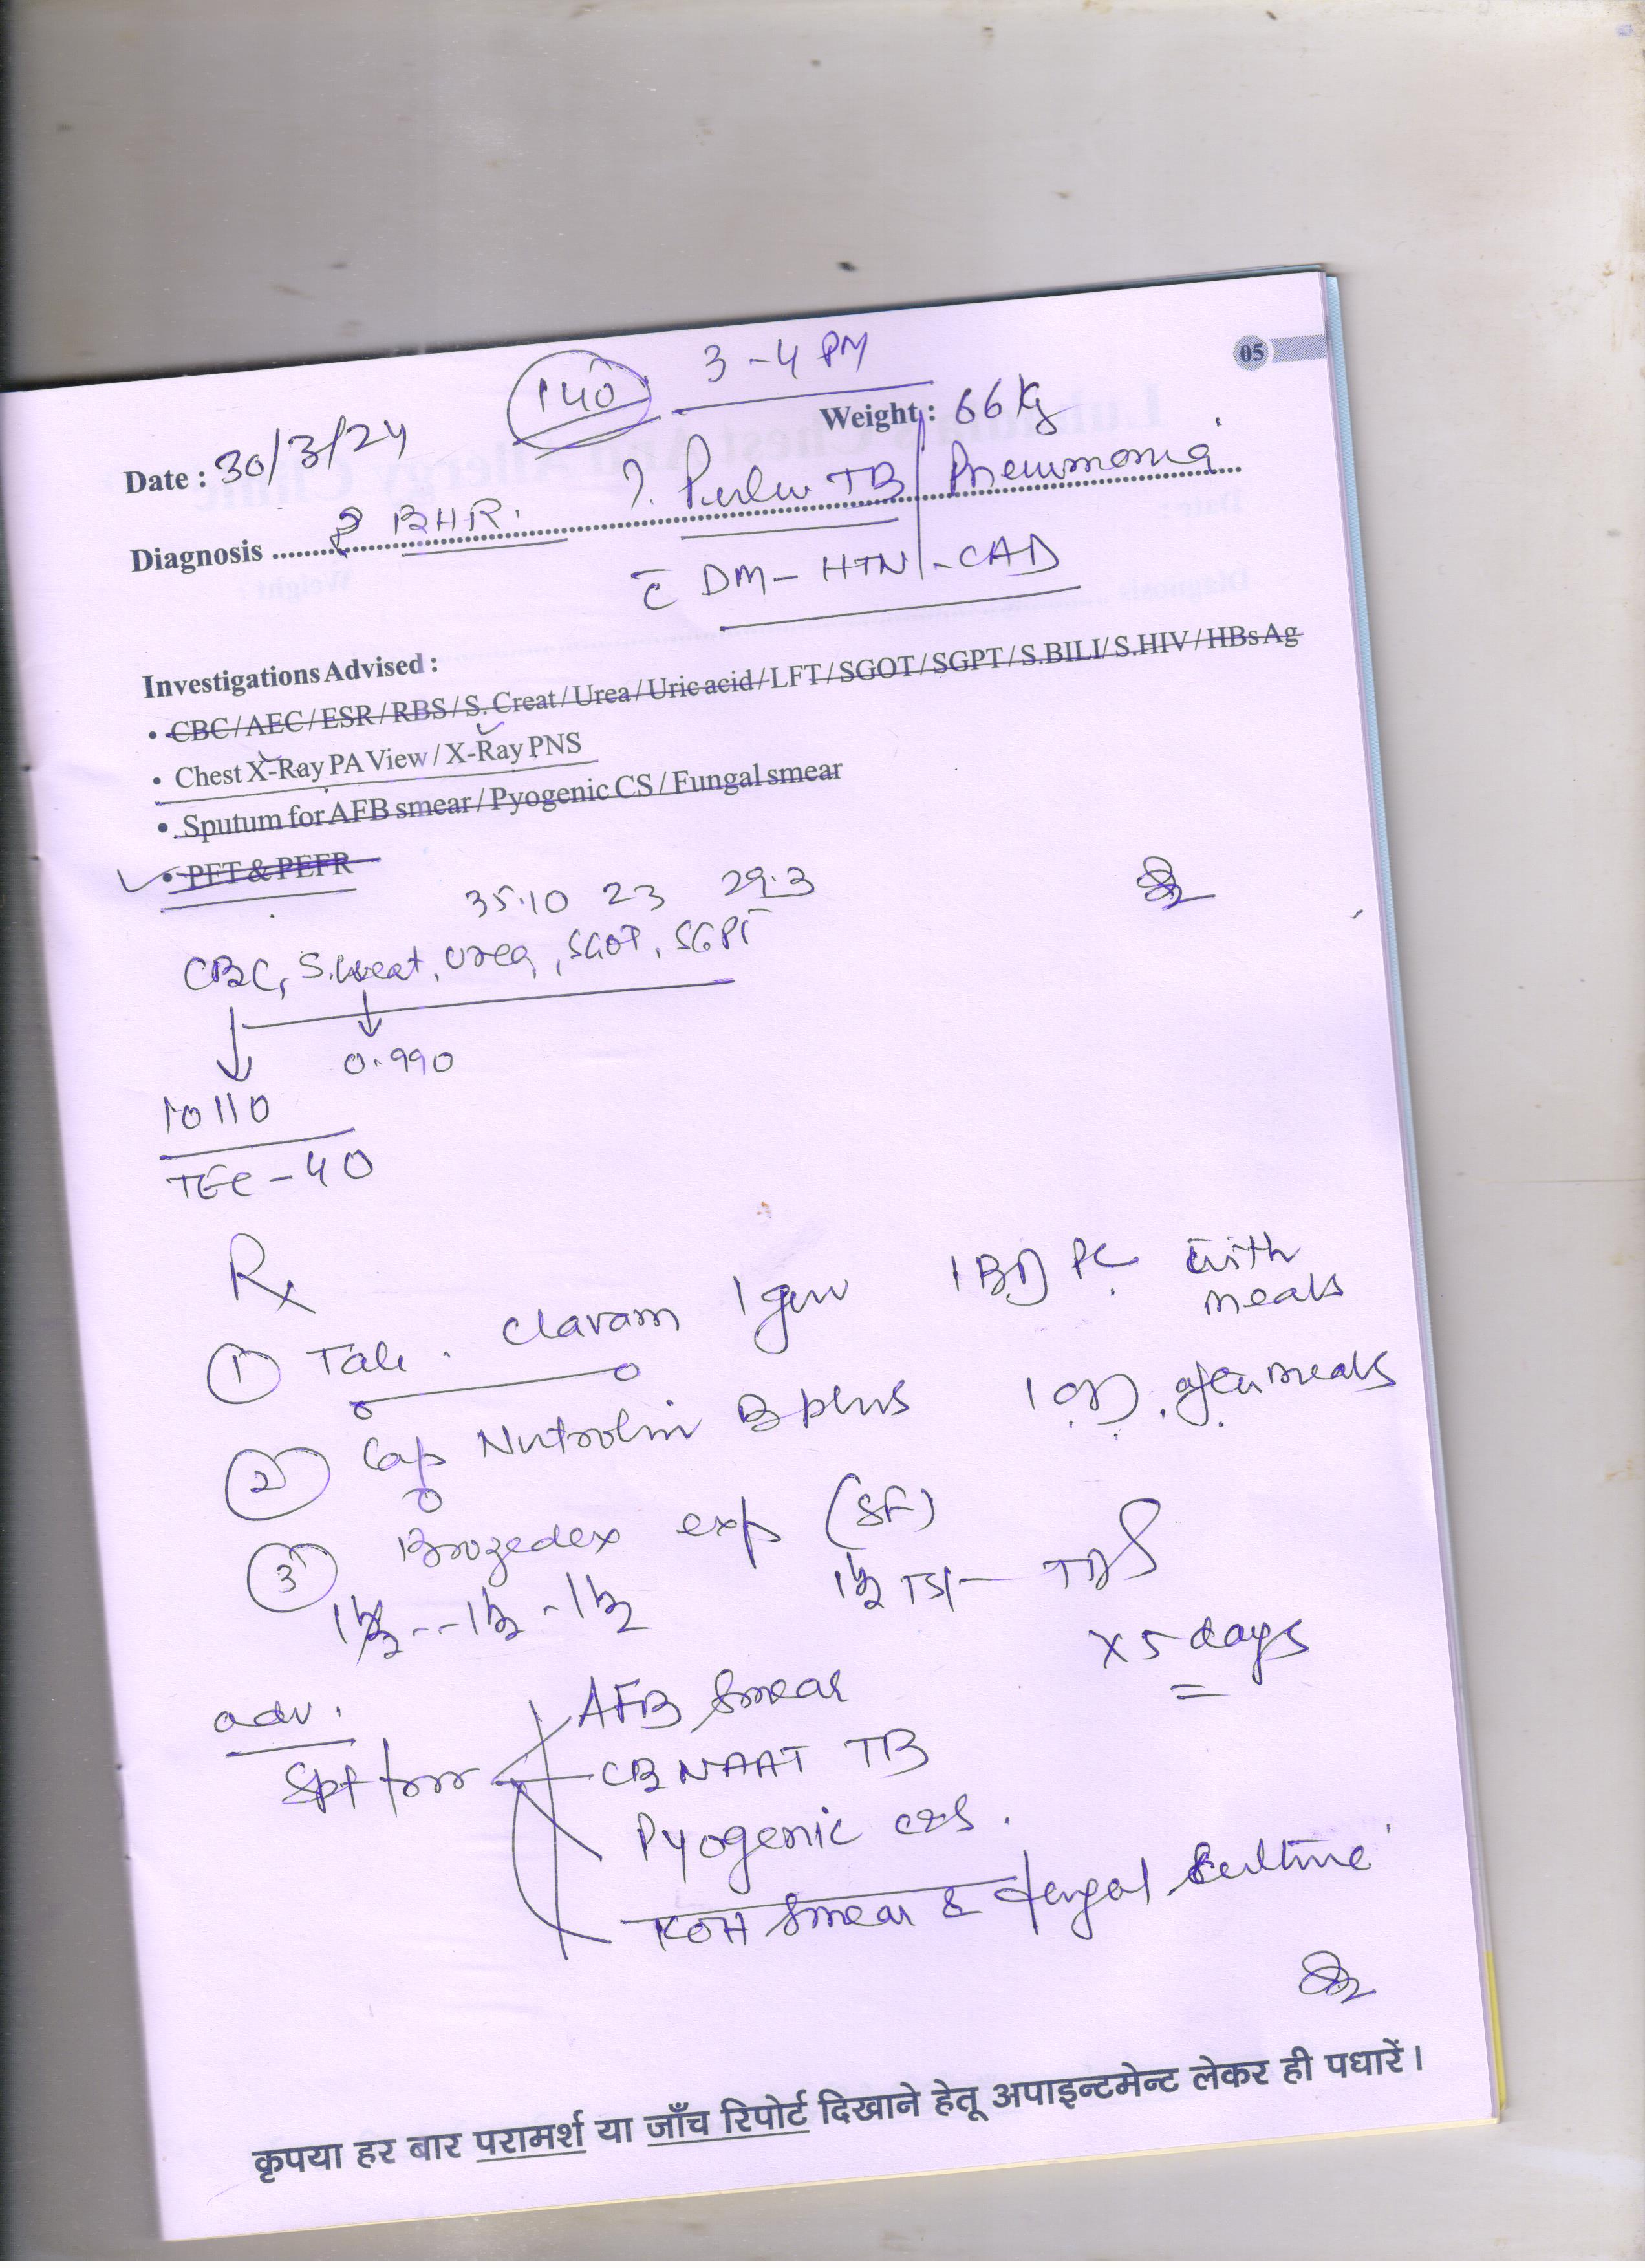 05
140 3-4 PM
Date : 30/3/24 Weight : 66 kg
Diagnosis BHR. ?. Pulm TB / Pneumonia
c̄ DM - HTN - CAD
Investigations Advised :
• CBC / AEC / ESR / RBS / S. Creat / Urea / Uric acid / LFT / SGOT / SGPT / S.BILI / S.HIV / HBsAg
• Chest X-Ray PA View / X-Ray PNS
• Sputum for AFB smear / Pyogenic CS / Fungal smear
• PFT & PEFR
35.10 23 29.3
CBC, S.creat, urea, SGOT, SGPT
0.990
10110
TEC - 40
Rx
① Tab. Clavam 1gm 1 BD PC with meals
② Cap Nutrolin B plus 1 OD. after meals
③ Brozedex exp (SF)
1½ -- 1½ - 1½ 1½ TSF TDS
x 5 days
adv.
Spt for AFB Smear
CBNAAT TB
Pyogenic c&s.
KOH Smear & fungal culture
कृपया हर बार परामर्श या जाँच रिपोर्ट दिखाने हेतू अपाइन्टमेन्ट लेकर ही पधारें।